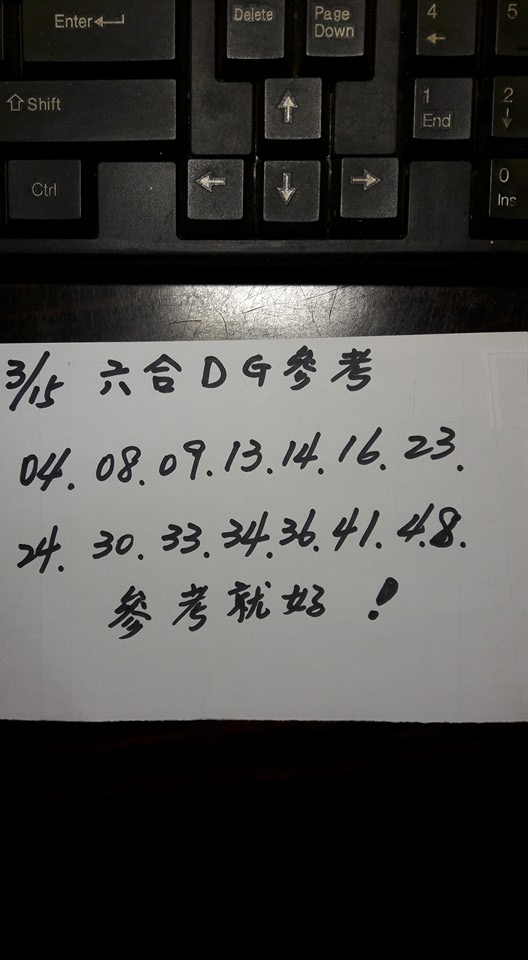 Enter
Delete
Page Down
4
5
Shift
1 End
2
Ctrl
0 Ins
3/15 六合DG參考
04. 08. 09. 13. 14. 16. 23.
24. 30. 33. 34. 36. 41. 48.
參考就好！